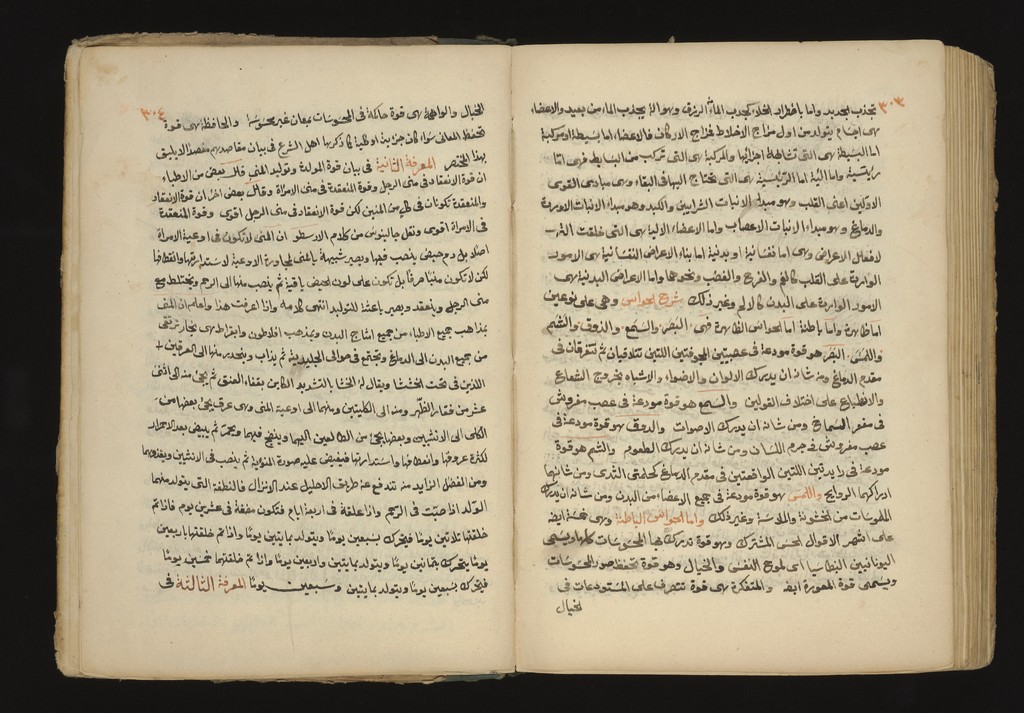 ٣٠٣
تجذب الحديد واما باضطرار الخلاء كجذب الماء الزيت وهو الة يجذب الماء من بعيد والاعضاء
هى اجسام يتولد من اول مزاج الاخلاط فمزاج الاركان فالاعضاء اما بسيطة او مركبة
اما البسيطة هى التى تشابهة اجزائها والمركبة هى التى تركب من البسايط فهى اما
رئيسية واما الية اما الرئيسية هى التى تحتاج اليها فى البقاء وهى مبادى القوى
الاولين اعنى القلب وهو مبداء لانبات الشرايين والكبد وهو مبداء لانبات الاوردة
والدماغ وهو مبداء لانبات الاعصاب واما الاعضاء الالية هى التى خلقت
لافعال الاعراض وهى اما نفسانية او بدنية اما بناء الاعراض النفسانية هى الامور
الواردة على القلب كالغم والفرح والغضب ونحوهما واما الاعراض البدنية هى
الامور الواردة على البدن كالالم وغير ذلك شرح الحواس وهى على نوعين
اما ظاهرة واما باطنة اما الحواس الظاهرة فهى البصر والسمع والذوق والشم
واللمس البصر هو قوة مودعة فى عصبتين المجوفتين اللتين تتلاقيان ثم تتفرقان فى
مقدم الدماغ ومن شانه ان يدرك الالوان والاضواء والاشباه بخروج الشعاع
والانطباع على اختلاف القولين والسمع هو قوة مودعة فى عصب مفروش
فى مقعر الصماخ ومن شانه ان يدرك الاصوات والذوق هو قوة مودعة فى
عصب مفروش فى جرم اللسان ومن شانه ان يدرك الطعوم والشم هو قوة
مودعة فى زايدتين اللتين الواقعتين فى مقدم الدماغ كحلمتى الثدى ومن شانهما
ادراكهما الروايح واللمس هو قوة مودعة فى جميع الاعضاء من البدن ومن شانه ان يدرك
الملموسات من الخشونة والملاسة وغير ذلك واما الحواس الباطنة وهى خمسة ايضه
على اشهر الاقوال الحس المشترك وهو قوة تدرك بها المحسوسات كلها ويسمى
اليونانيين البنطاسيا اى بلوح النفس والخيال وهو قوة تحفظ صور المحسوسات
ويسمى قوة المصورة ايضه والمتفكرة هى قوة تتصرف على المستودعات فى
الخيال
٣٠٤
الخيال والواهمة هى قوة حاكمة فى المحسوسات بمعان غير محسوسة والحافظة هى قوة
تحفظ المعانى سواء كان جزئية او كلية كما ذكرها اهل الشرع فى بيان مقاصدهم مفصلا لا يليق
بهذا المختصر المعرفة الثانية فى بيان قوة المولدة وتوليد المنى قال بعض من الاطباء
ان قوة الانعقاد فى منى الرجل وقوة المنعقدة فى منى الامرأة وقال بعض اخر ان قوة الانعقاد
والمنعقدة تكونان فى كل من المنين لكن قوة الانعقاد فى منى الرجل اقوى وقوة المنعقدة
فى الامرأة اقوى ونقل جالينوس من كلام الارسطو ان المنى لا تكون فى اوعية الامرأة
اصلا بل دم حيض ينصب فيها ويصير شبيهة بالمنى لمجاورة الاوعية لاستدارتها وانعطافها
لكن لا تكون منيا صرفا بل تكون على لون الحيض باقية ثم ينصب منها الى الرحم ويختلط مع
منى الرجل وينعقد ويصير باعثة للتوليد انتهى كلامه واذا عرفت هذا واعلم ان المنى
بمذاهب جميع الاطباء من جميع امشاج البدن وبمذهب افلاطون وابقراط هى بخار ترتقى
من جميع البدن الى الدماغ ويجتمع فى حوالى الجليدية ثم يذاب وينحدر منها الى العرقين
اللذين فى تحت الخششا ويقال له الخشا بالتشديد الكاين بقفاء العنق ثم يجئ منه الى اثنى
عشر من فقار الظهر ومنه الى الكليتين ومنهما الى اوعية المنى وهى عرق يجئ بعضها من
الكلى الى الانثيين وبعضها يجئ من الطالعين اليهما وينضج فيهما ويحمر ثم يبيض بعد الاحمرار
لكثرة عروقها وانعطافها واستدارتها فيفيض عليه صورة المنوية ثم ينصب فى الانثيين ويغذيهما
ومن الفضل الزايد منه تندفع عن طريق الاحليل عند الانزال فالنطفة التى يتولد منها
الولد اذا صبت فى الرحم واذا علقة فى اربعة ايام فتكون مضغة فى عشرين يوم فاذا تم
خلقتها ثلاثين يوما فيتحرك بسبعين يوما ويتولد بمايتين يوما واذا تم خلقتها باربعين
يوما يتحرك بثمانين يوما ويتولد بمايتين واربعين يوما واذا تم خلقتهما خمسين يوما
فيتحرك بتسعين يوما ويتولد بمايتين وسبعين يوما المعرفة الثالثة فى